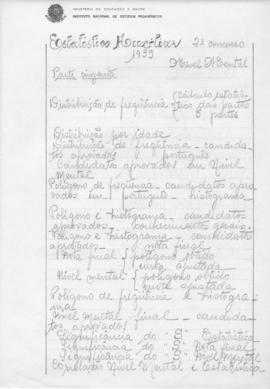 MINISTÉRIO DA EDUCAÇÃO E SAÚDE
INSTITUTO NACIONAL DE ESTUDOS PEDAGÓGICOS
Estatístico Auxiliar 2º concurso
1939
Nivel Mental
Parte
Distribuição de freqüência
5 partes
Distribuição por idade
Distribuição de freqüência - candida-
tos aprovados português
Candidatos aprovados em Nivel
Mental
Poligono de freqüencia - candidatos apro-
vados em português - histograma
Poligono e histograma - candidatos
aprovados - conhecimentos gerais
Poligono e histograma - candidatos
aprovados - nota final
Nota final poligono obtido
curva ajustada
Nivel mental poligono obtido
curva ajustada
Poligono de freqüencia e histogra-
ma
Nivel Mental final - candida-
tos aprovados
Significância do "S" Estatística
Significância do "S" Nota final
Significância do "S" Nivel Mental
Correlação Nivel Mental e Estatística